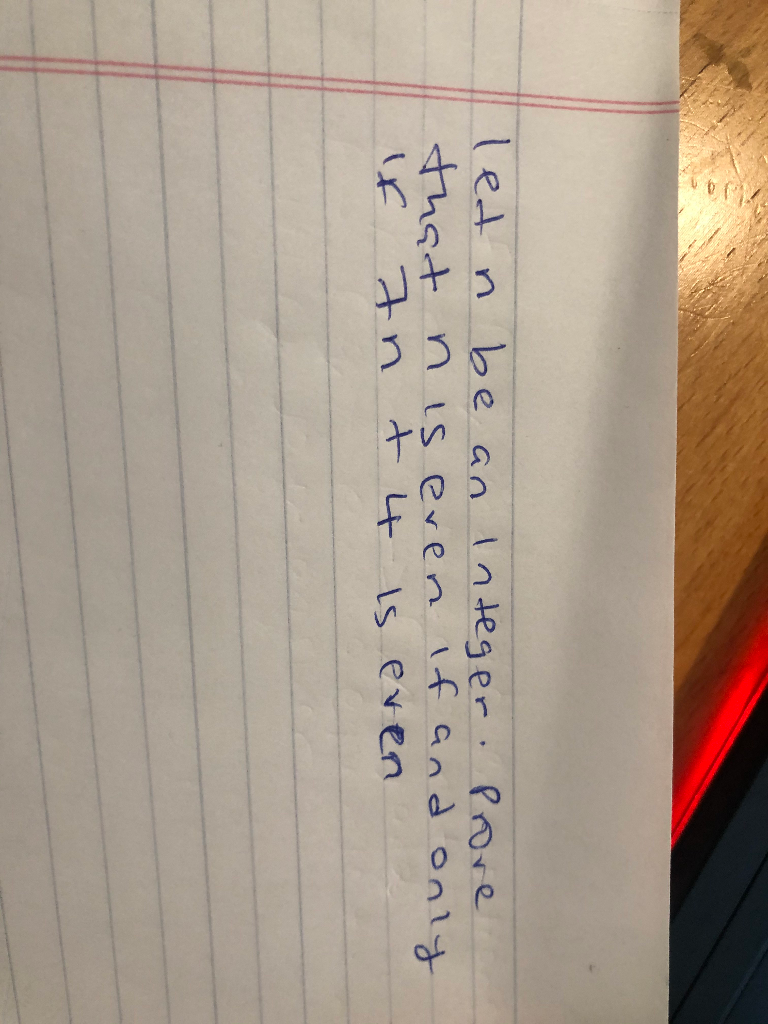 let n be an integer. Prove
that n is even if and only
if 7n + 4 is even